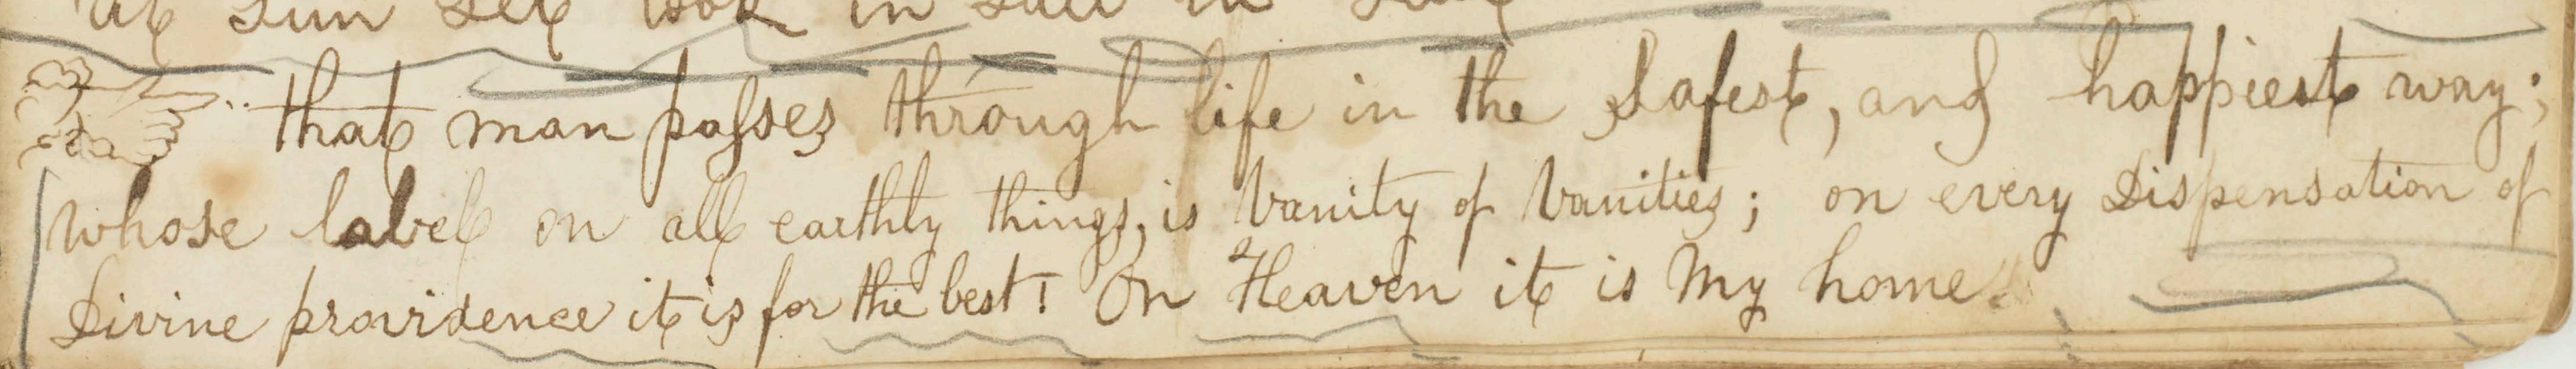 at Sun Set took in Sail in
that man passes through life in the Safest, and happiest way;
whose label on all earthly things, is Vanity of Vanities; on every Dispensation of
Divine providence it is for the best! On Heaven it is My home.